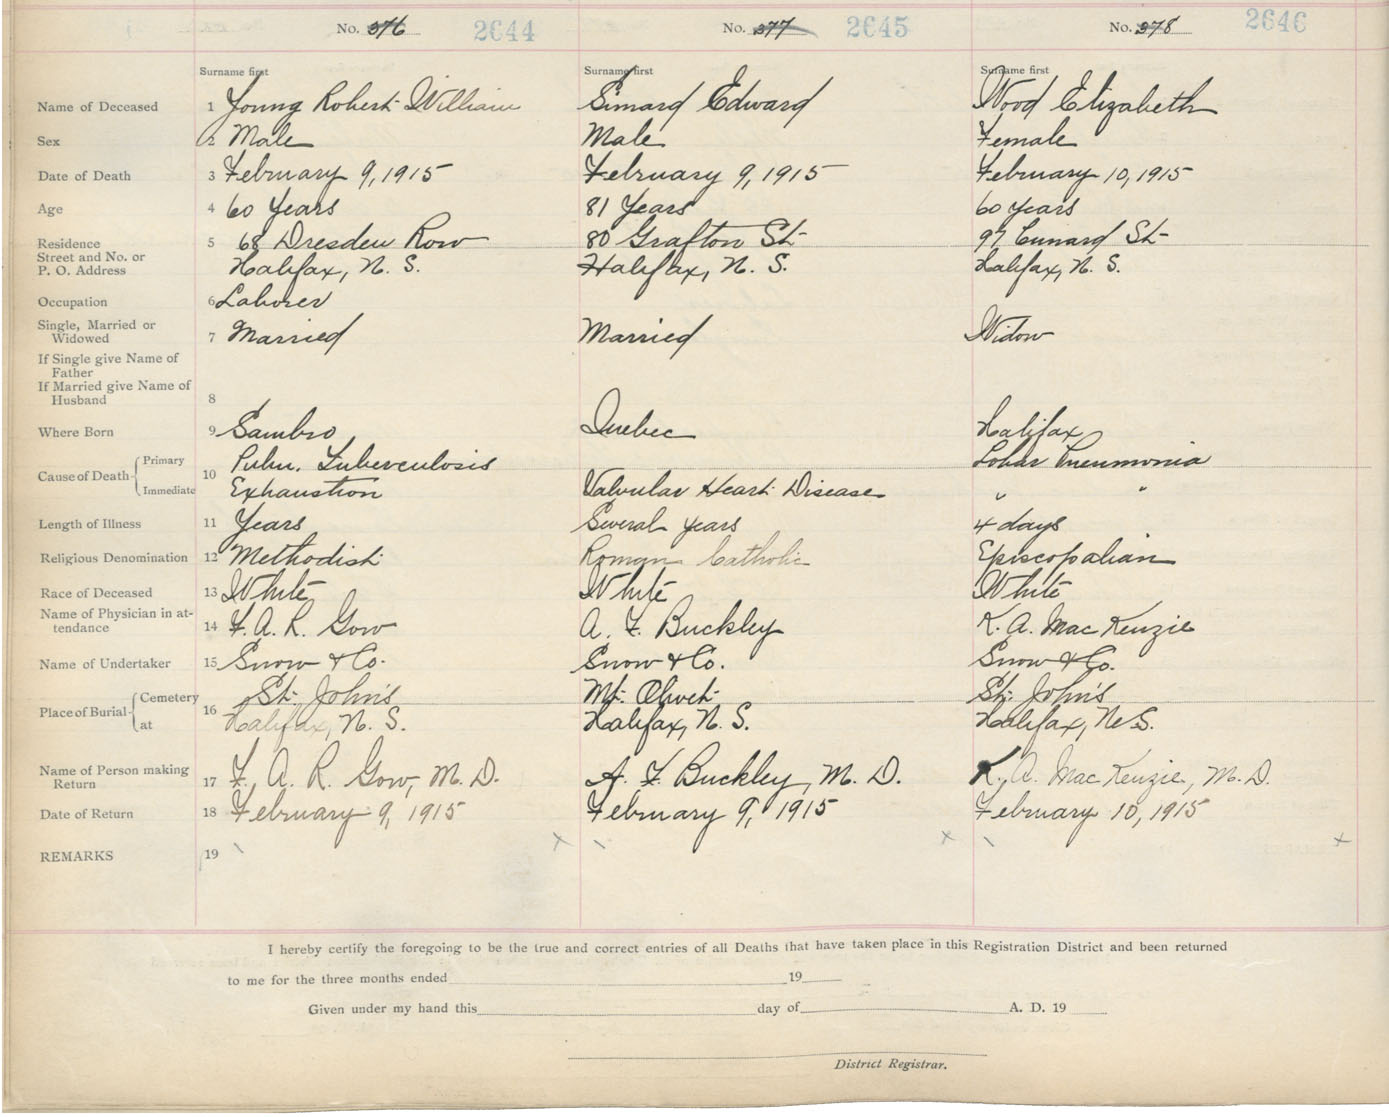 No. 376 2644 No. 377 2645 No. 378 2646
Surname first Surname first Surname first
Name of Deceased 1 Young Robert William Simard Edward Wood Elizabeth
Sex 2 Male Male Female
Date of Death 3 February 9, 1915 February 9, 1915 February 10, 1915
Age 4 60 Years 81 Years 60 years
Residence 5 68 Dresden Row 80 Grafton St. 97 Cunard St.
Street and No. or
P. O. Address Halifax, N. S. Halifax, N. S. Halifax, N. S.
Occupation 6 Laborer
Single, Married or
Widowed 7 Married Married Widow
If Single give Name of
Father
If Married give Name of
Husband 8
Where Born 9 Sambro Quebec Halifax
Cause of Death Primary 10 Pulm. Tuberculosis Lobar Pneumonia
Immediate Exhaustion Valvular Heart Disease " "
Length of Illness 11 Years Several years 4 days
Religious Denomination 12 Methodist Roman Catholic Episcopalian
Race of Deceased 13 White White White
Name of Physician in at-
tendance 14 F. A. R. Gow A. F. Buckley K. A. MacKenzie
Name of Undertaker 15 Snow & Co. Snow & Co. Snow & Co.
Place of Burial Cemetery 16 St. John's Mt. Olivet St. John's
at Halifax, N. S. Halifax, N. S. Halifax, N. S.
Name of Person making
Return 17 F. A. R. Gow, M. D. A. F. Buckley, M. D. K. A. MacKenzie, M. D.
Date of Return 18 February 9, 1915 February 9, 1915 February 10, 1915
REMARKS 19 \ x \ x \ x
I hereby certify the foregoing to be the true and correct entries of all Deaths that have taken place in this Registration District and been returned
to me for the three months ended 19
Given under my hand this day of A. D. 19
District Registrar.